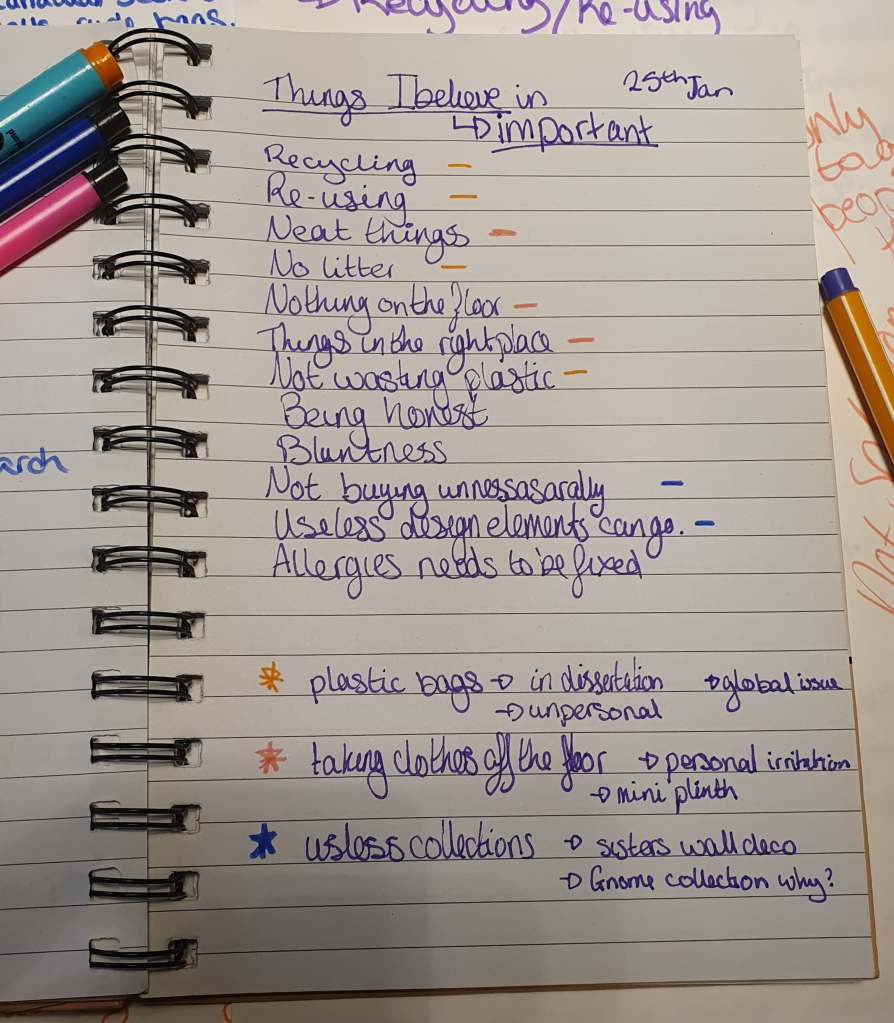 Recycling/Re-using
25th Jan
Things I believe in
↳ important
Recycling –
Re-using –
Neat things –
No litter –
Nothing on the floor –
Things in the right place –
Not wasting plastic –
Being honest
Bluntness
Not buying unnessasarally –
Useless design elements can go. –
Allergies needs to be fixed
* plastic bags → in dissertation → global issue
→ unpersonal
* taking clothes off the floor → personal irritation
→ mini plinth
* usless collections → sisters wall deco
→ Gnome collection why?
arch
only
Not